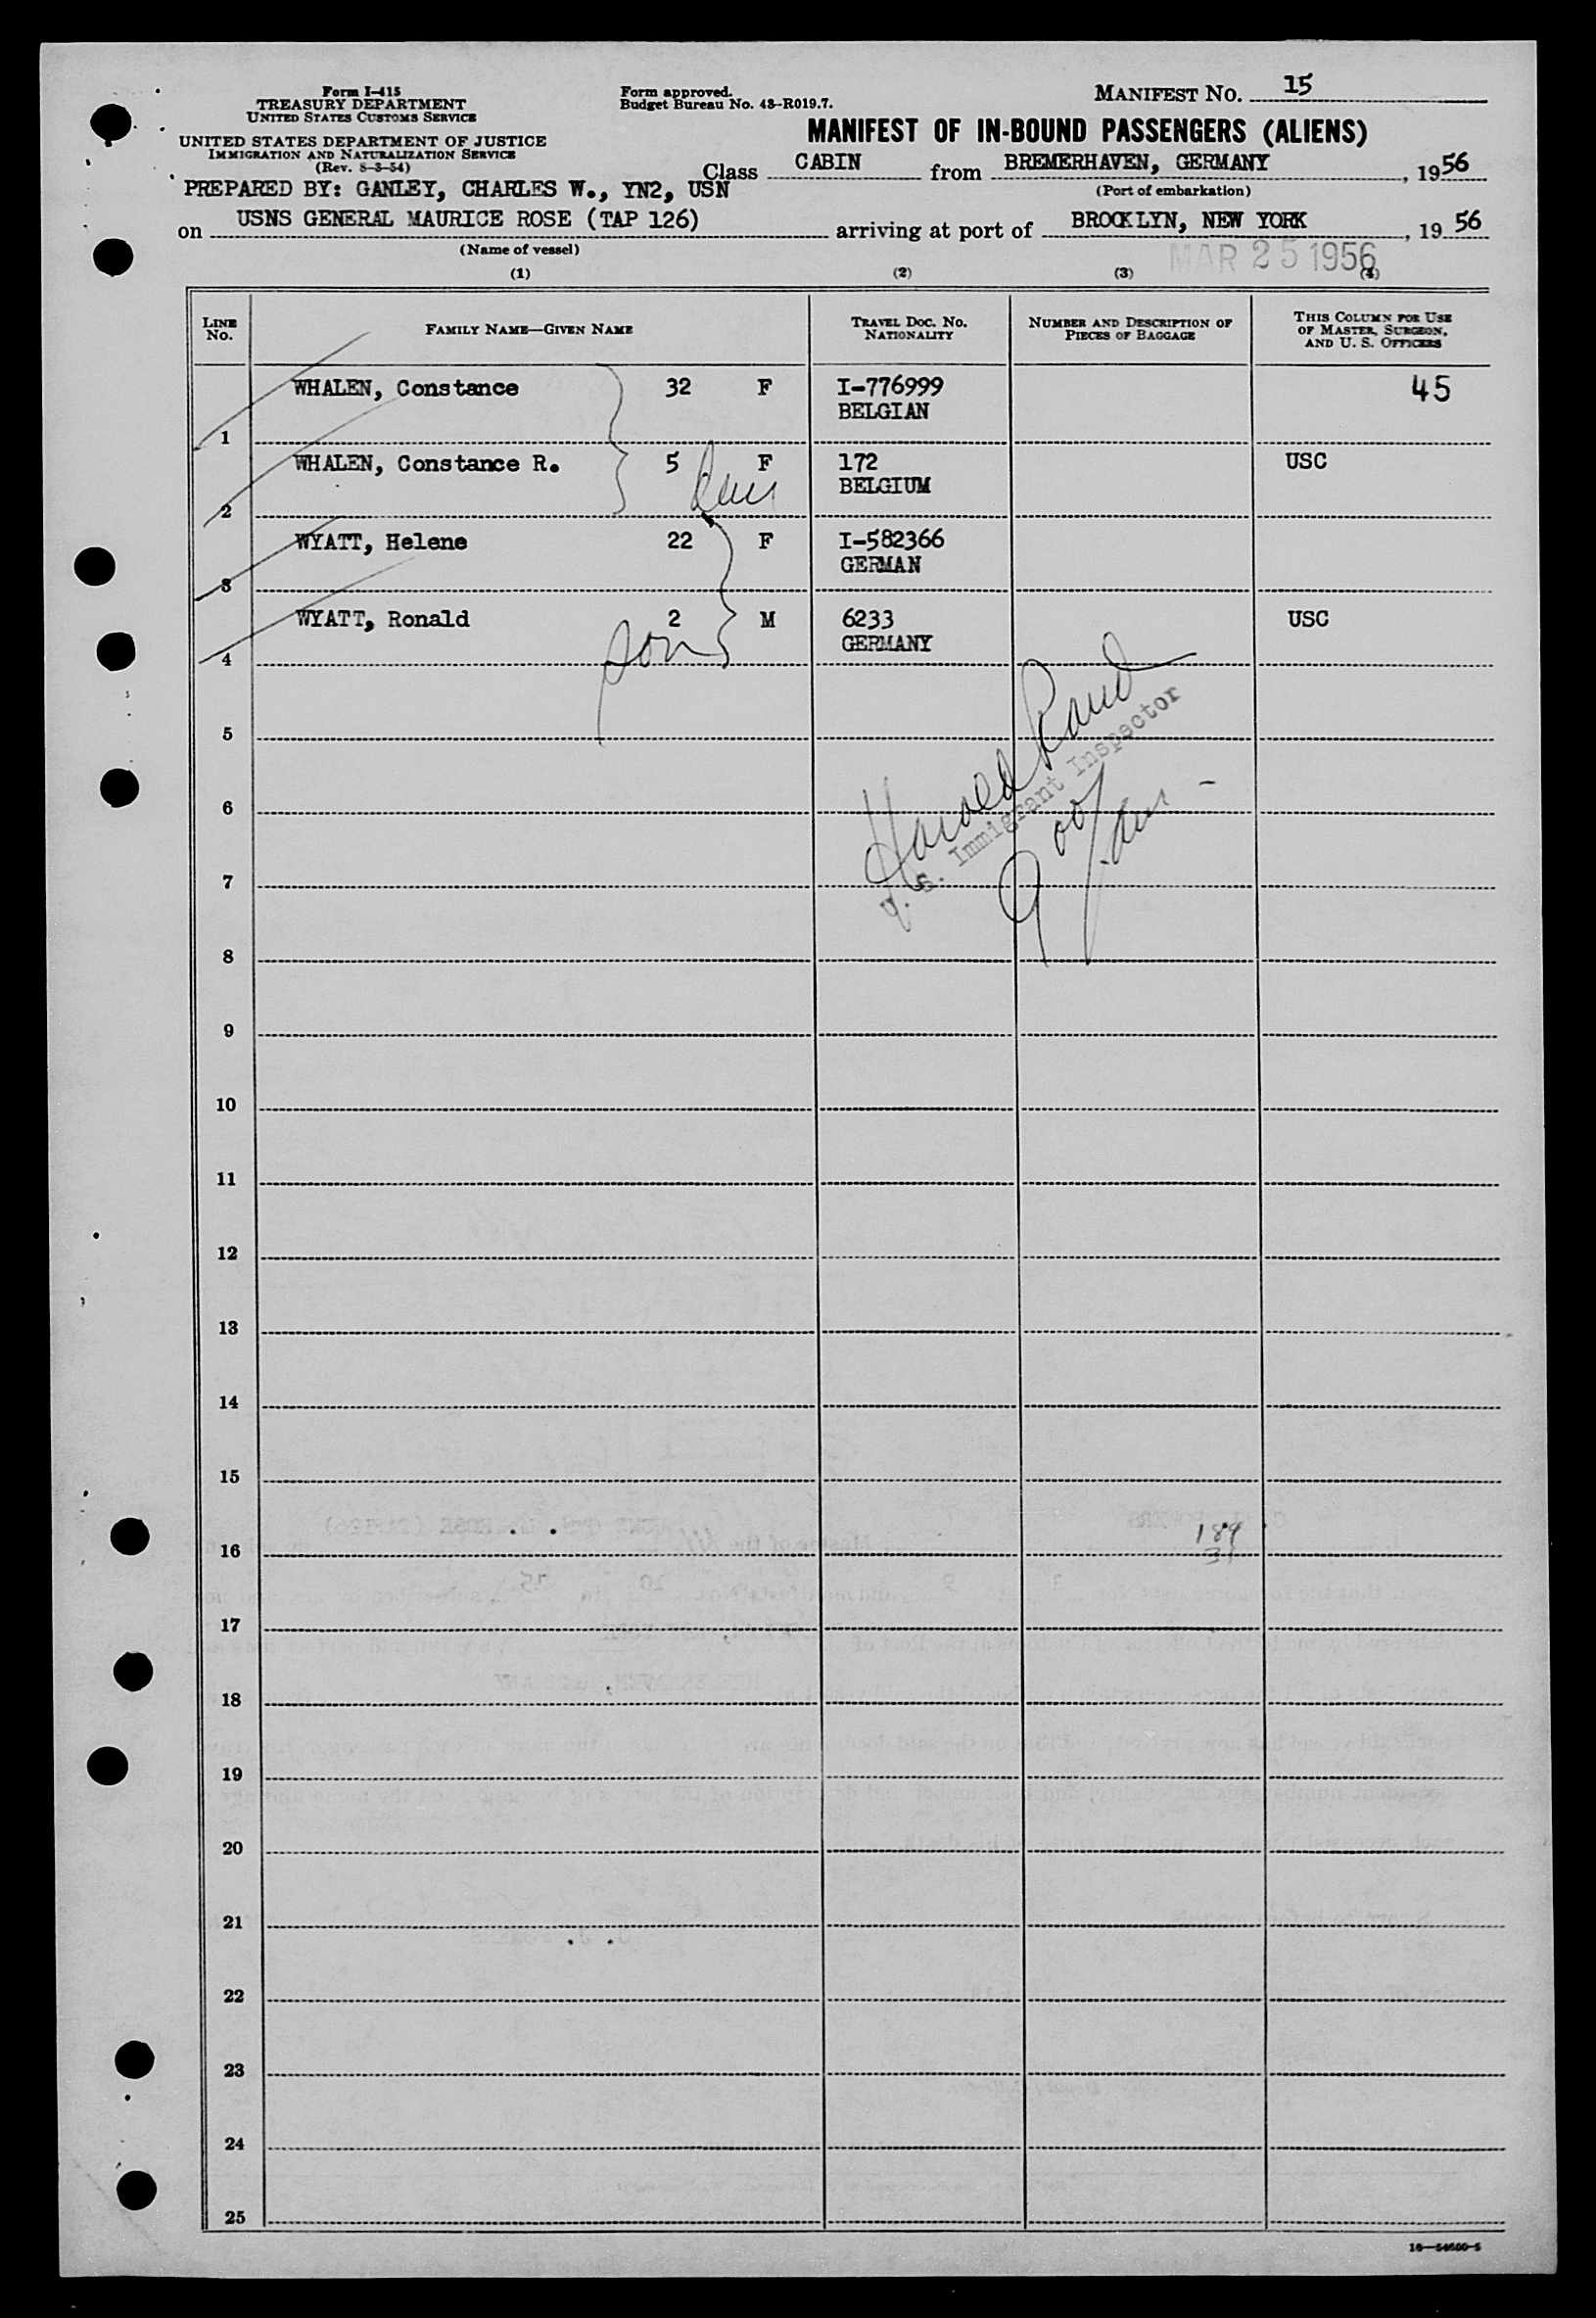 Form I-415
TREASURY DEPARTMENT
UNITED STATES CUSTOMS SERVICE
UNITED STATES DEPARTMENT OF JUSTICE
IMMIGRATION AND NATURALIZATION SERVICE
(Rev. 8-3-54)
Form approved.
Budget Bureau No. 43-R019.7.
MANIFEST NO. 15
MANIFEST OF IN-BOUND PASSENGERS (ALIENS)
Class CABIN from BREMERHAVEN, GERMANY, 1956
(Port of embarkation)
PREPARED BY: GANLEY, CHARLES W., YN2, USN
on USNS GENERAL MAURICE ROSE (TAP 126) arriving at port of BROOKLYN, NEW YORK, 1956
(Name of vessel)
MAR 25 1956
(1) (2) (3) (4)
LINE NO.
FAMILY NAME—GIVEN NAME
TRAVEL DOC. NO. NATIONALITY
NUMBER AND DESCRIPTION OF PIECES OF BAGGAGE
THIS COLUMN FOR USE OF MASTER, SURGEON, AND U. S. OFFICERS
1 WHALEN, Constance 32 F I-776999 45
BELGIAN
2 WHALEN, Constance R. 5 F 172 USC
BELGIUM
3 WYATT, Helene 22 F I-582366
GERMAN
4 WYATT, Ronald 2 M 6233 USC
GERMANY
son
Harold Rand
U. S. Immigrant Inspector
5
6
7
8
9
10
11
12
13
14
15
16
189
31
17
18
19
20
21
22
23
24
25